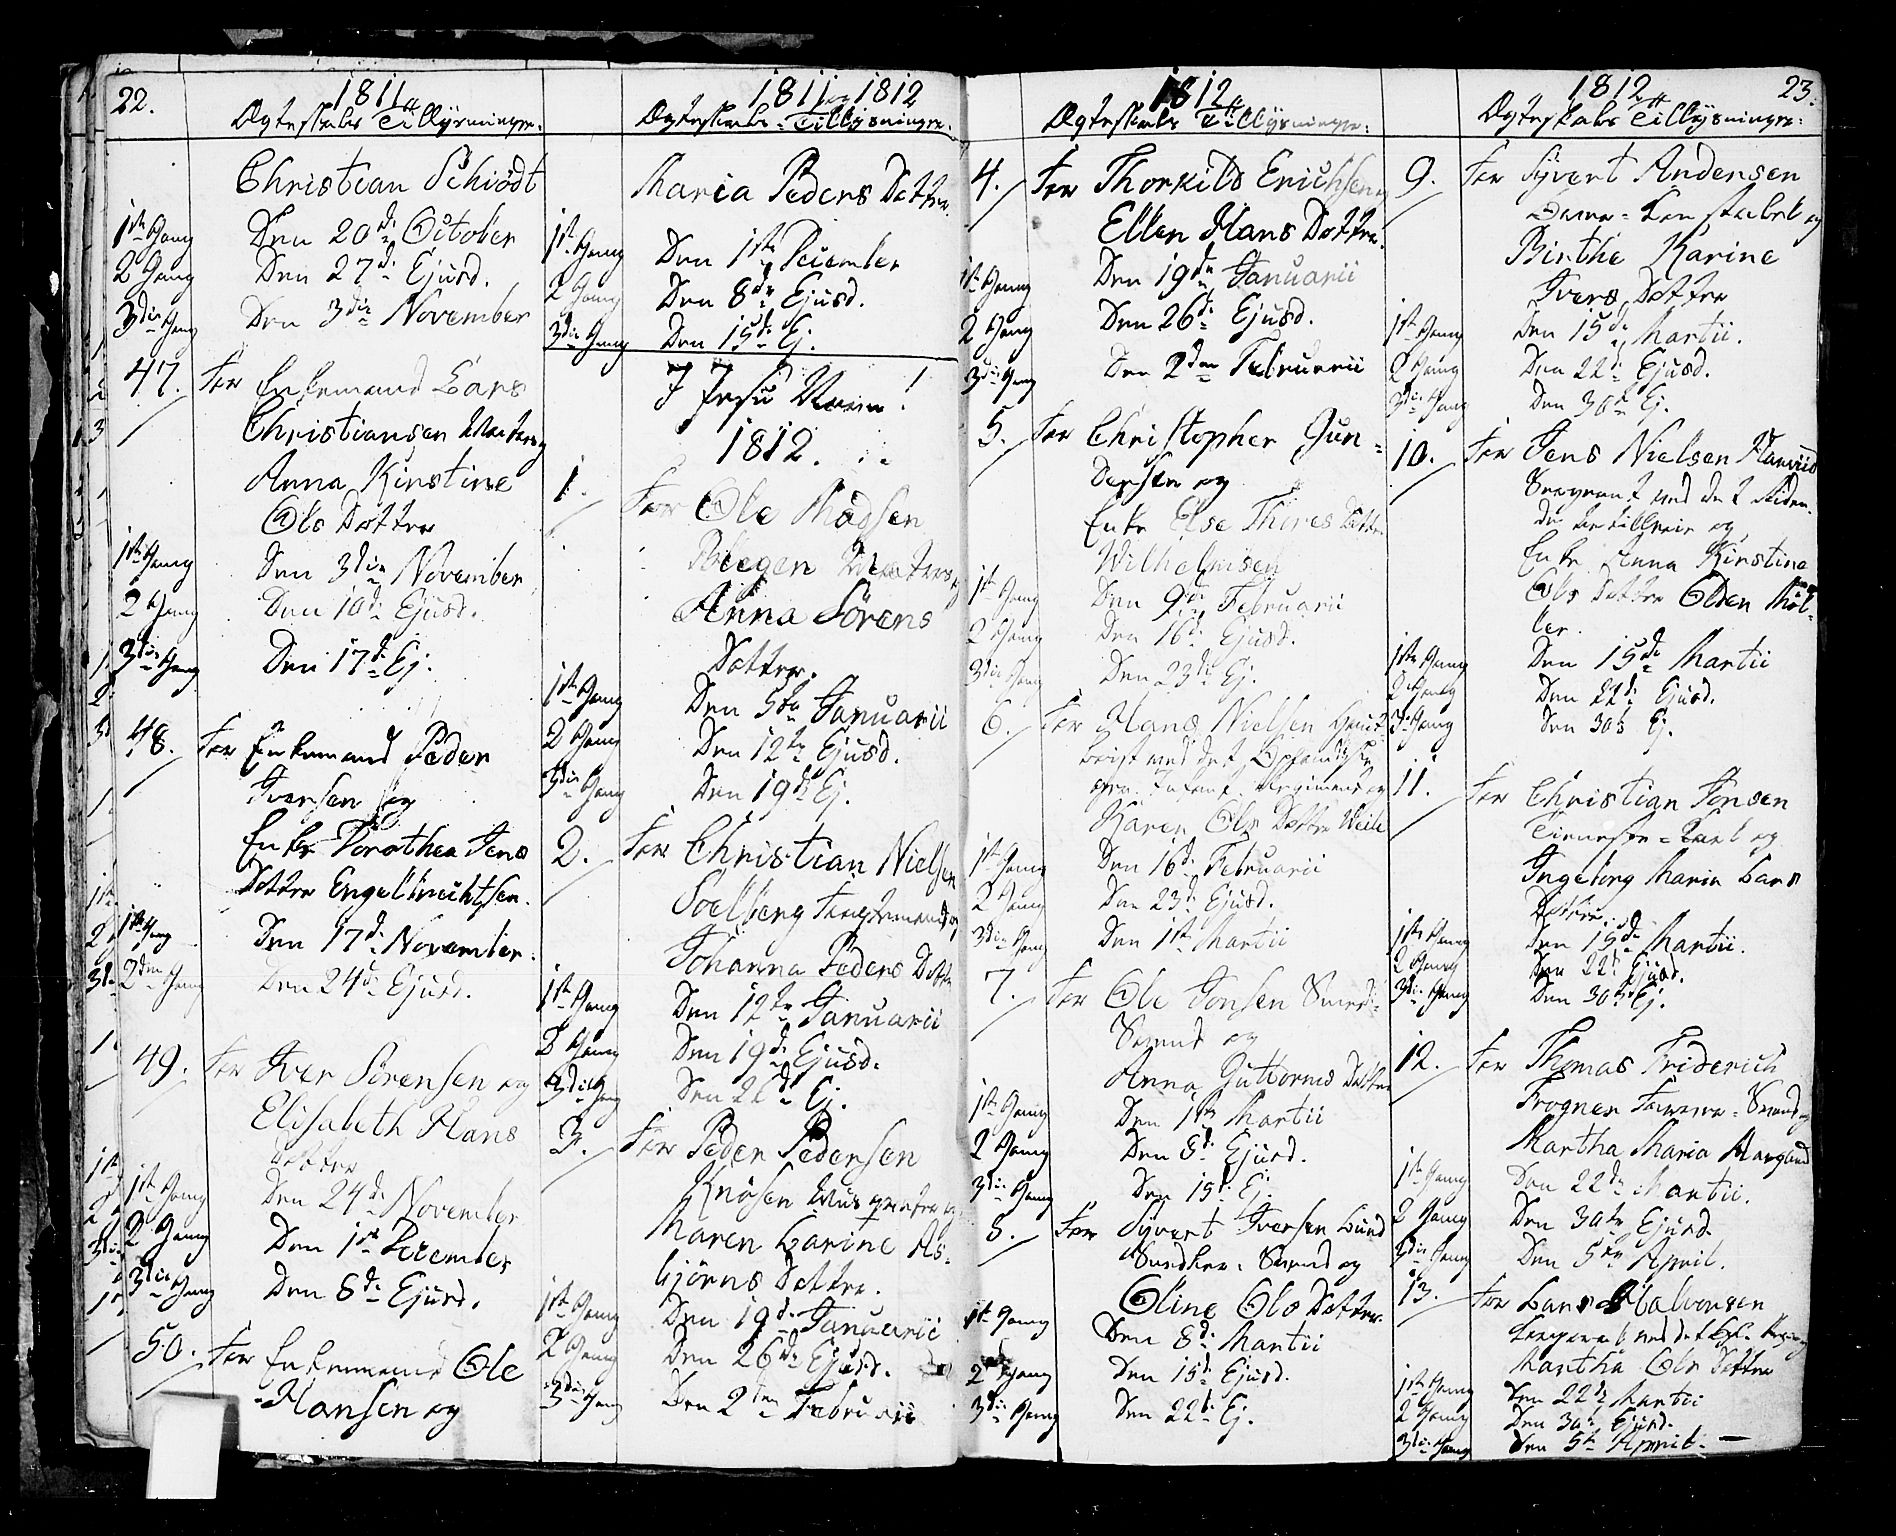 22.
1811
Ægteskabs Tillysninger.
Christian Schiödt
1ste Gang Den 20de October
2 Gang Den 27de Ejusd.
3die Gang Den 3die November
47. For Enkemand Lars
Christiansen og
Anna Kirstine
Ols Datter
1ste Gang Den 3die November
2 Gang Den 10de Ejusd.
3die Gang Den 17de Ej.
48. For Enkemand Peder
Iversen og
Enke Dorothea Jens
Datter Engelbrechtsen.
1ste Gang Den 17de November.
2den Gang Den 24de Ejusd.
49. For Iver Sörensen og
Elisabeth Hans
Datter
1ste Gang Den 24de November
2 Gang Den 1ste December
3die Gang Den 8de Ejusd.
50. For Enkemand Ole
Hansen og
1811 og 1812
Ægteskabs-Tillysninger.
Maria Peders Datter
1ste Gang Den 1ste December
2 Gang Den 8de Ejusd.
3die Gang Den 15de Ej.
I Jesu Navn!
1812.
1. For Ole Madsen
Blegen og
Anna Sörens
Datter.
1ste Gang Den 5te Januarii
2 Gang Den 12te Ejusd.
3die Gang Den 19de Ej.
2. For Christian Nielsen
Soelberg og
Johanna Peders Datter
1ste Gang Den 12te Januarii
2 Gang Den 19de Ejusd.
3die Gang Den 26de Ej.
3. For Peder Pedersen
Knösen og
Maren Carine As-
björns Datter.
1ste Gang Den 19de Januarii
2 Gang Den 26de Ejusd.
3die Gang Den 2den Februarii
1812
Ægteskabs Tillysninger.
4. For Thorkild Erichsen og
Ellen Hans Datter.
1ste Gang Den 19de Januarii
2 Gang Den 26de Ejusd.
3die Gang Den 2den Februarii
5. For Christopher Gun-
dersen og
Enke Else Thores Datter
Wilhelmsen
1ste Gang Den 9de Februarii
2 Gang Den 16de Ejusd.
3die Gang Den 23de Ej.
6. For Hans Nielsen
med det
og
Karen Ols Datter Weile
1ste Gang Den 16de Februarii
2 Gang Den 23de Ejusd.
3die Gang Den 1ste Martii
7. For Ole Jonsen
Svend og
Anna Guttorms Datter
1ste Gang Den 1ste Martii
2 Gang Den 8de Ejusd.
3die Gang Den 15de Ej.
8. For Syvert Iversen Lund
Snedker-Svend og
Oline Ols Datter.
1ste Gang Den 8de Martii
2 Gang Den 15de Ejusd.
3die Gang Den 22de Ej.
1812
23.
Ægteskabs Tillysninger.
9. For Syvert Andersen
og
Birthe Karine
Ivers Datter
1ste Gang Den 15de Martii.
2 Gang Den 22de Ejusd.
3die Gang Den 30te Ej.
10. For Jens Nielsen
Sergeant ved det
og
Enke Anna Kirstine
Ols Datter Olsen Möl-
ler.
1ste Gang Den 15de Martii
2 Gang Den 22de Ejusd.
3die Gang Den 30te Ej.
11. For Christian Jonsen
Tieneste-Karl og
Ingeborg Maria Lars
Datter.
1ste Gang Den 15de Martii.
2 Gang Den 22de Ejusd.
3die Gang Den 30te Ej.
12. For Thomas Friderich
Frogner Farver-Svend og
Martha Maria
1ste Gang Den 22de Martii.
2 Gang Den 30te Ejusd.
3die Gang Den 5te April.
13. For Lars Halvorsen
ved det
Martha Ols Datter
1ste Gang Den 22de Martii
2 Gang Den 30te Ejusd.
3die Gang Den 5te April. —